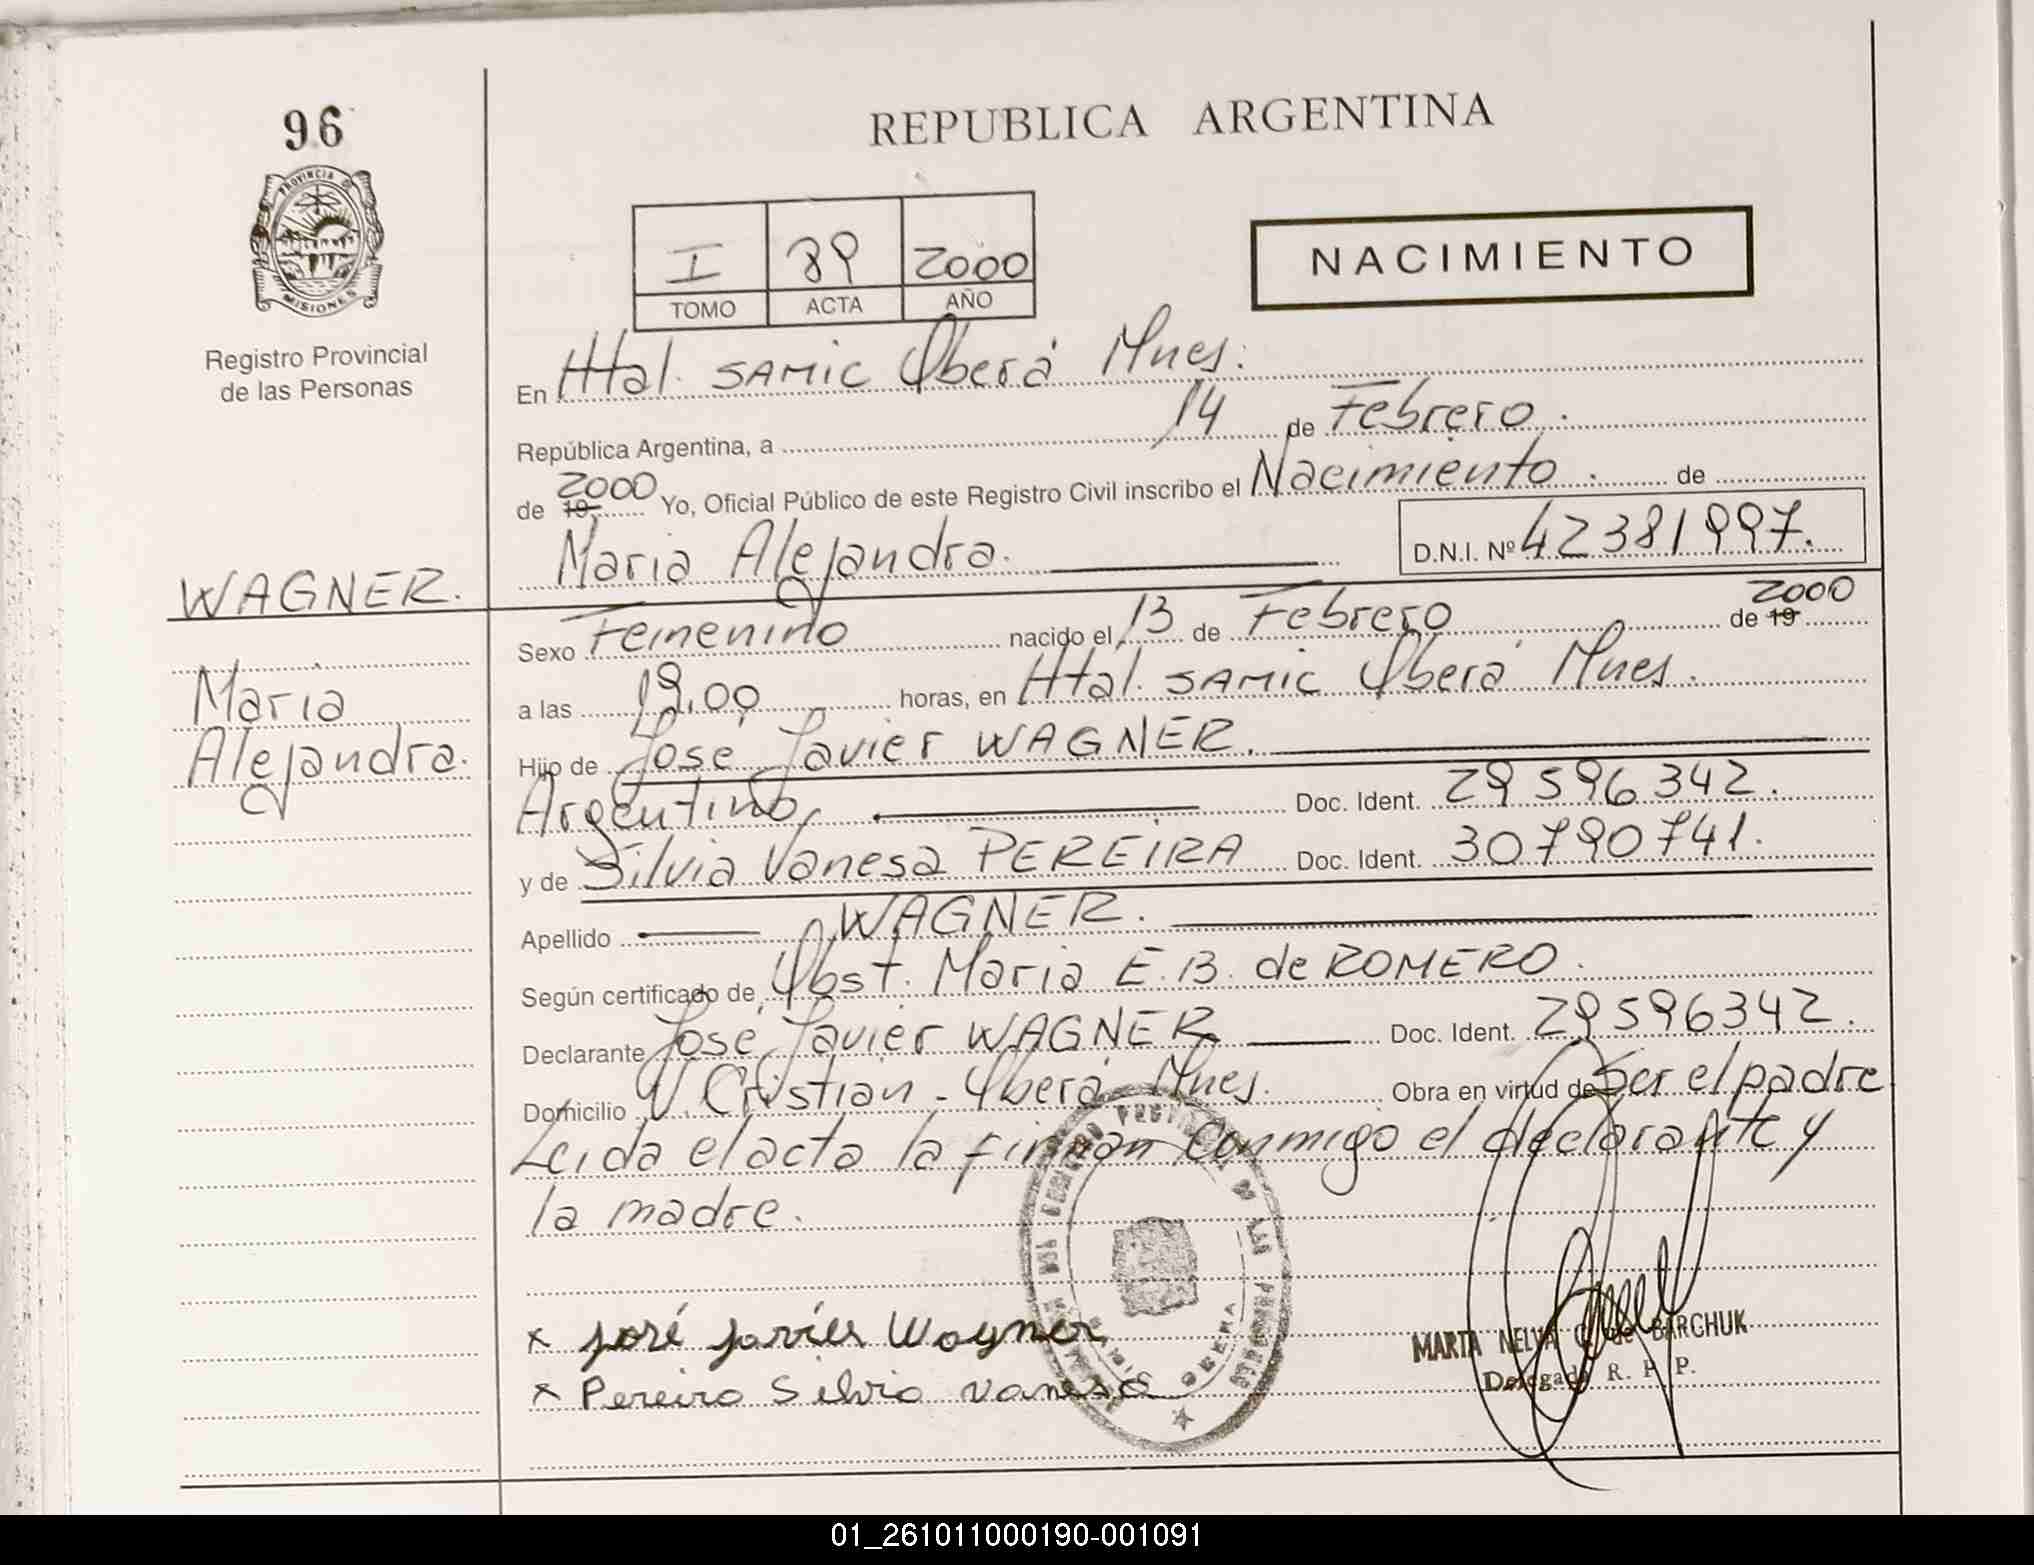 96
PROVINCIA D
MISIONES
Registro Provincial
de las Personas
WAGNER.
Maria
Alejandra.
REPUBLICA ARGENTINA
I 89 2000
TOMO ACTA AÑO
NACIMIENTO
En Htal. SAMIC Oberá Mnes.
República Argentina, a 14 de Febrero.
de 19 2000 Yo, Oficial Público de este Registro Civil inscribo el Nacimiento. de
Maria Alejandra. D.N.I. Nº 42381997.
Sexo Femenino nacido el 13 de Febrero de 19 2000
a las 19,00 horas, en Htal. SAMIC Oberá Mnes.
Hijo de José Javier WAGNER.
Argentino, Doc. Ident. 29596342.
y de Silvia Vanesa PEREIRA Doc. Ident. 30790741.
Apellido WAGNER.
Según certificado de, Obst. Maria E.B. de ROMERO.
Declarante José Javier WAGNER Doc. Ident. 29596342.
Domicilio V. Cristian - Oberá Mnes. Obra en virtud de Ser el padre
Leida el acta la firman conmigo el declarante y
la madre.
x José Javier Wagner
x Pereira Silvia Vanesa
MARTA NELVA de BARCHUK
Delegada R. P. P.
01_261011000190-001091